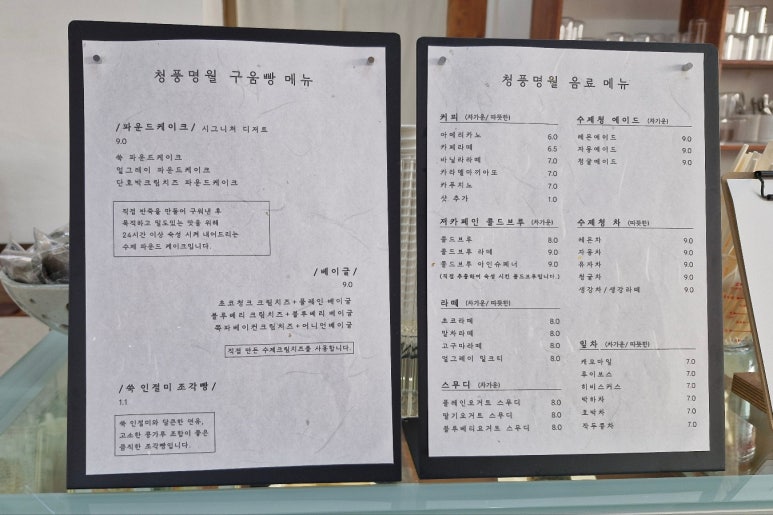 청풍명월 구움빵 메뉴
/파운드케이크/ 시그니처 디저트
9.0
쑥 파운드케이크
얼그레이 파운드케이크
단호박크림치즈 파운드케이크
직접 반죽을 만들어 구워낸 후
묵직하고 밀도있는 맛을 위해
24시간 이상 숙성 시켜 내어드리는
수제 파운드 케이크입니다.
/베이글/
9.0
초코청크 크림치즈+플레인 베이글
블루베리 크림치즈+블루베리 베이글
쪽파베이컨크림치즈+어니언베이글
직접 만든 수제크림치즈를 사용합니다.
/쑥 인절미 조각빵/
1.1
쑥 인절미와 달콤한 연유,
고소한 콩가루 조합이 좋은
큼직한 조각빵입니다.
청풍명월 음료 메뉴
커피 (차가운/따뜻한)
아메리카노 6.0
카페라떼 6.5
바닐라라떼 7.0
카라멜마끼아또 7.0
카푸치노 7.0
샷 추가 1.0
저카페인 콜드브루 (차가운)
콜드브루 8.0
콜드브루 라떼 9.0
콜드브루 아인슈페너 9.0
(직접 추출하여 숙성 시킨 콜드브루입니다.)
라떼 (차가운/따뜻한)
초코라떼 8.0
말차라떼 8.0
고구마라떼 8.0
얼그레이 밀크티 8.0
스무디 (차가운)
플레인요거트 스무디 8.0
딸기요거트 스무디 8.0
블루베리요거트 스무디 8.0
수제청 에이드 (차가운)
레몬에이드 9.0
자몽에이드 9.0
청귤에이드 9.0
수제청 차 (따뜻한)
레몬차 9.0
자몽차 9.0
유자차 9.0
청귤차 9.0
생강차/생강라떼 9.0
잎차 (차가운/따뜻한)
캐모마일 7.0
루이보스 7.0
히비스커스 7.0
박하차 7.0
호박차 7.0
작두콩차 7.0